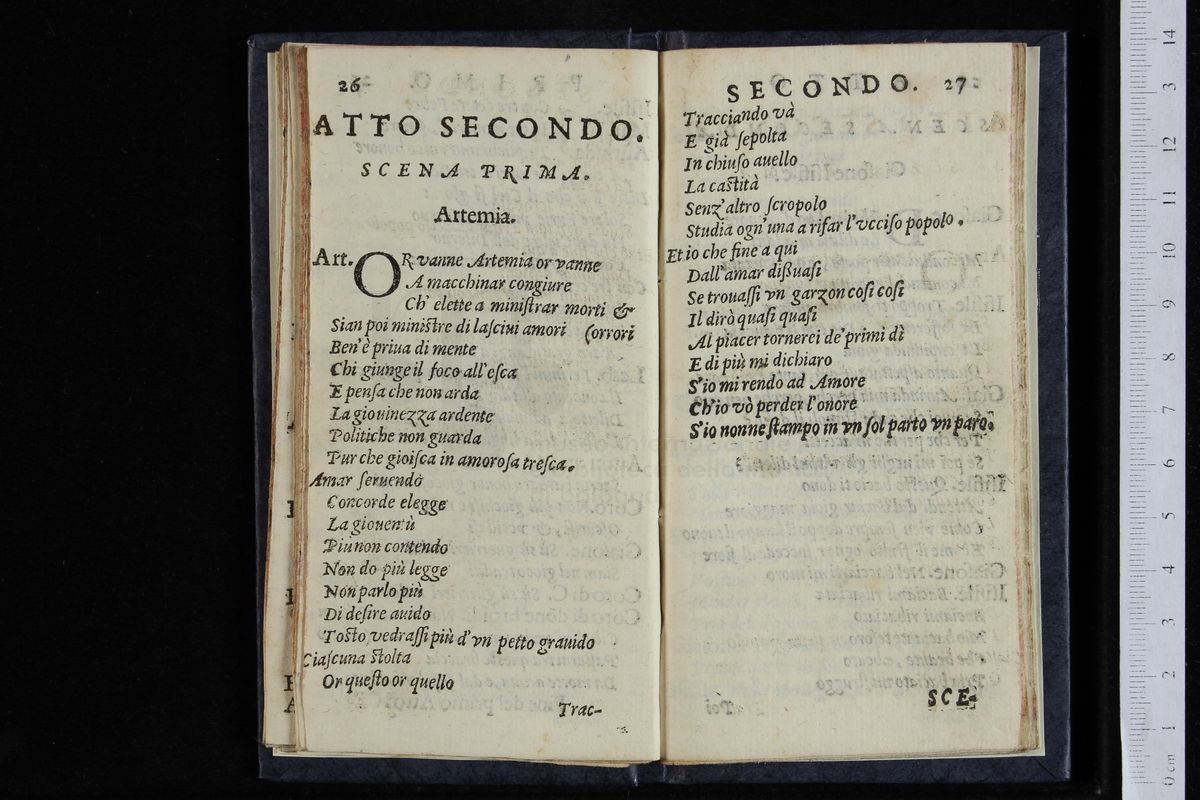 26
ATTO SECONDO.
SCENA PRIMA.
Artemia.
Art. OR vanne Artemia or vanne
A macchinar congiure
Ch' elette a miniſtrar morti &
Sian poi miniſtre di laſciui amori (orrori
Ben'è priua di mente
Chi giunge il foco all'eſca
E penſa che non arda
La giouinezza ardente
Politiche non guarda
Pur che gioiſca in amoroſa treſca.
Amar feruendo
Concorde elegge
La giouentù
Piu non contendo
Non do più legge
Non parlo più
Di deſire auido
Toſto vedraſſi più d'vn petto grauido
Ciaſcuna ſtolta
Or queſto or quello
Trac-
SECONDO. 27
Tracciando và
E già ſepolta
In chiuſo auello
La caſtità
Senz'altro ſcropolo
Studia ogn'una a rifar l'vcciſo popolo.
Et io che fine a qui
Dall'amar dißuaſi
Se trouaſſi vn garzon coſi coſi
Il dirò quaſi quaſi
Al piacer tornerei de'primi dì
E di più mi dichiaro
S'io mi rendo ad Amore
Ch'io vò perder l'onore
S'io nonne ſtampo in vn ſol parto vn paro.
SCE-
0 cm 1 2 3 4 5 6 7 8 9 10 11 12 13 14